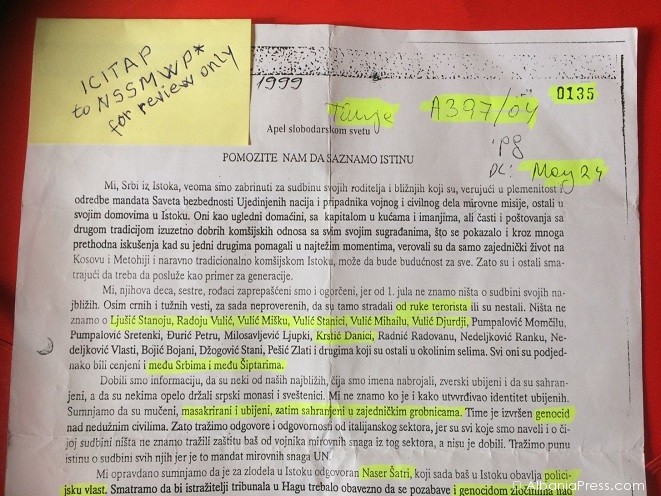 ICITAP
to NSSMWP*
for review only
1999
Timje A397/04
0135
pg
DC: May 24
Apel slobodarskom svetu
POMOZITE NAM DA SAZNAMO ISTINU
Mi, Srbi iz Istoka, veoma smo zabrinuti za sudbinu svojih roditelja i bližnjih koji su, verujući u plemenitost i
odredbe mandata Saveta bezbednosti Ujedinjenih nacija i pripadnika vojnog i civilnog dela mirovne misije, ostali u
svojim domovima u Istoku. Oni kao ugledni domaćini, sa kapitalom u kućama i imanjima, ali časti i poštovanja sa
drugom tradicijom izuzetno dobrih komšijskih odnosa sa svim svojim sugrađanima, što se pokazalo i kroz mnoga
prethodna iskušenja kad su jedni drugima pomagali u najtežim momentima, verovali su da samo zajednički život na
Kosovu i Metohiji i naravno tradicionalno komšijskom Istoku, može da bude budućnost za sve. Zato su i ostali sma-
trajući da treba da posluže kao primer za generacije.
Mi, njihova deca, sestre, rođaci zaprepašćeni smo i ogorčeni, jer od 1. jula ne znamo ništa o sudbini svojih naj-
bližih. Osim crnih i tužnih vesti, za sada neproverenih, da su tamo stradali od ruke terorista ili su nestali. Ništa ne
znamo o Ljušić Stanoju, Radoju Vulić, Vulić Mišku, Vulić Stanici, Vulić Mihailu, Vulić Djurdji, Pumpalović Momčilu,
Pumpalović Sretenki, Đurić Petru, Milosavljević Ljupki, Krstić Danici, Radnić Radovanu, Nedeljković Ranku, Ne-
deljković Vlasti, Bojić Bojani, Džogović Stani, Pešić Zlati i drugima koji su ostali u okolinim selima. Svi oni su podjed-
nako bili cenjeni i među Srbima i među Šiptarima.
Dobili smo informaciju, da su neki od naših najbližih, čija smo imena nabrojali, zverski ubijeni i da su sahran-
jeni, a da su nekima opelo držali srpski monasi i sveštenici. Mi ne znamo ko je i kako utvrđivao identitet ubijenih.
Sumnjamo da su mučeni, masakrirani i ubijeni, zatim sahranjeni u zajedničkim grobnicama. Time je izvršen genocid
nad nedužnim civilima. Zato tražimo odgovore i odgovornosti od italijanskog sektora, jer su svi koje smo naveli i o či-
joj sudbini ništa ne znamo tražili zaštitu baš od vojnika mirovnih snaga iz tog sektora, a nisu je dobili. Tražimo punu
istinu o sudbini svih njih jer je to mandat mirovnih snaga UN.
Mi opravdano sumnjamo da je za zlodela u Istoku odgovoran Naser Šatri, koji sada baš u Istoku obavlja polici-
jsku vlast. Smatramo da bi istražitelji tribunala u Hagu trebalo obavezno da se pozabave i genocidom zločinima nad
AlbaniaPress.com